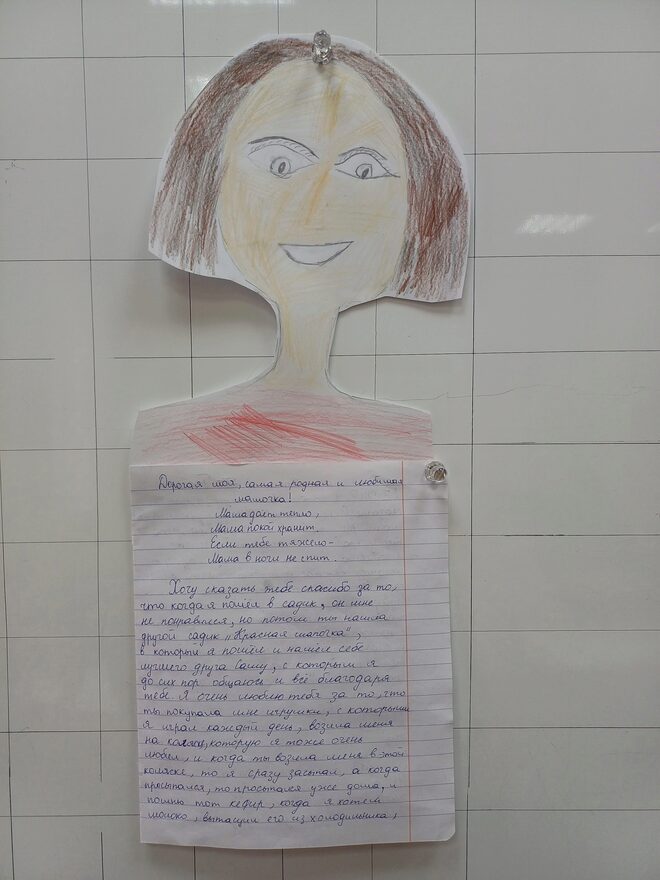 Дорогая моя, самая родная и любимая
мамочка!
Мама дает тепло,
Мама покой хранит.
Если тебе тяжело-
Мама в ночи не спит.
Хочу сказать тебе спасибо за то,
что когда я пошел в садик, он мне
не понравился, но потом ты нашла
другой садик „Красная шапочка",
в который я пошёл и нашёл себе
лучшего друга Сашу, с которым я
до сих пор общаюсь и всё благодаря
тебе. Я очень люблю тебя за то, что
ты покупала мне игрушки, с которыми
я играл каждый день, возила меня
на коляске, которую я тоже очень
любил, и когда ты возила меня в этой
коляске, то я сразу засыпал, а когда
просыпался, то просыпался уже дома, и
помню тот кефир, когда я хотел
молоко, вытащил его из холодильника,